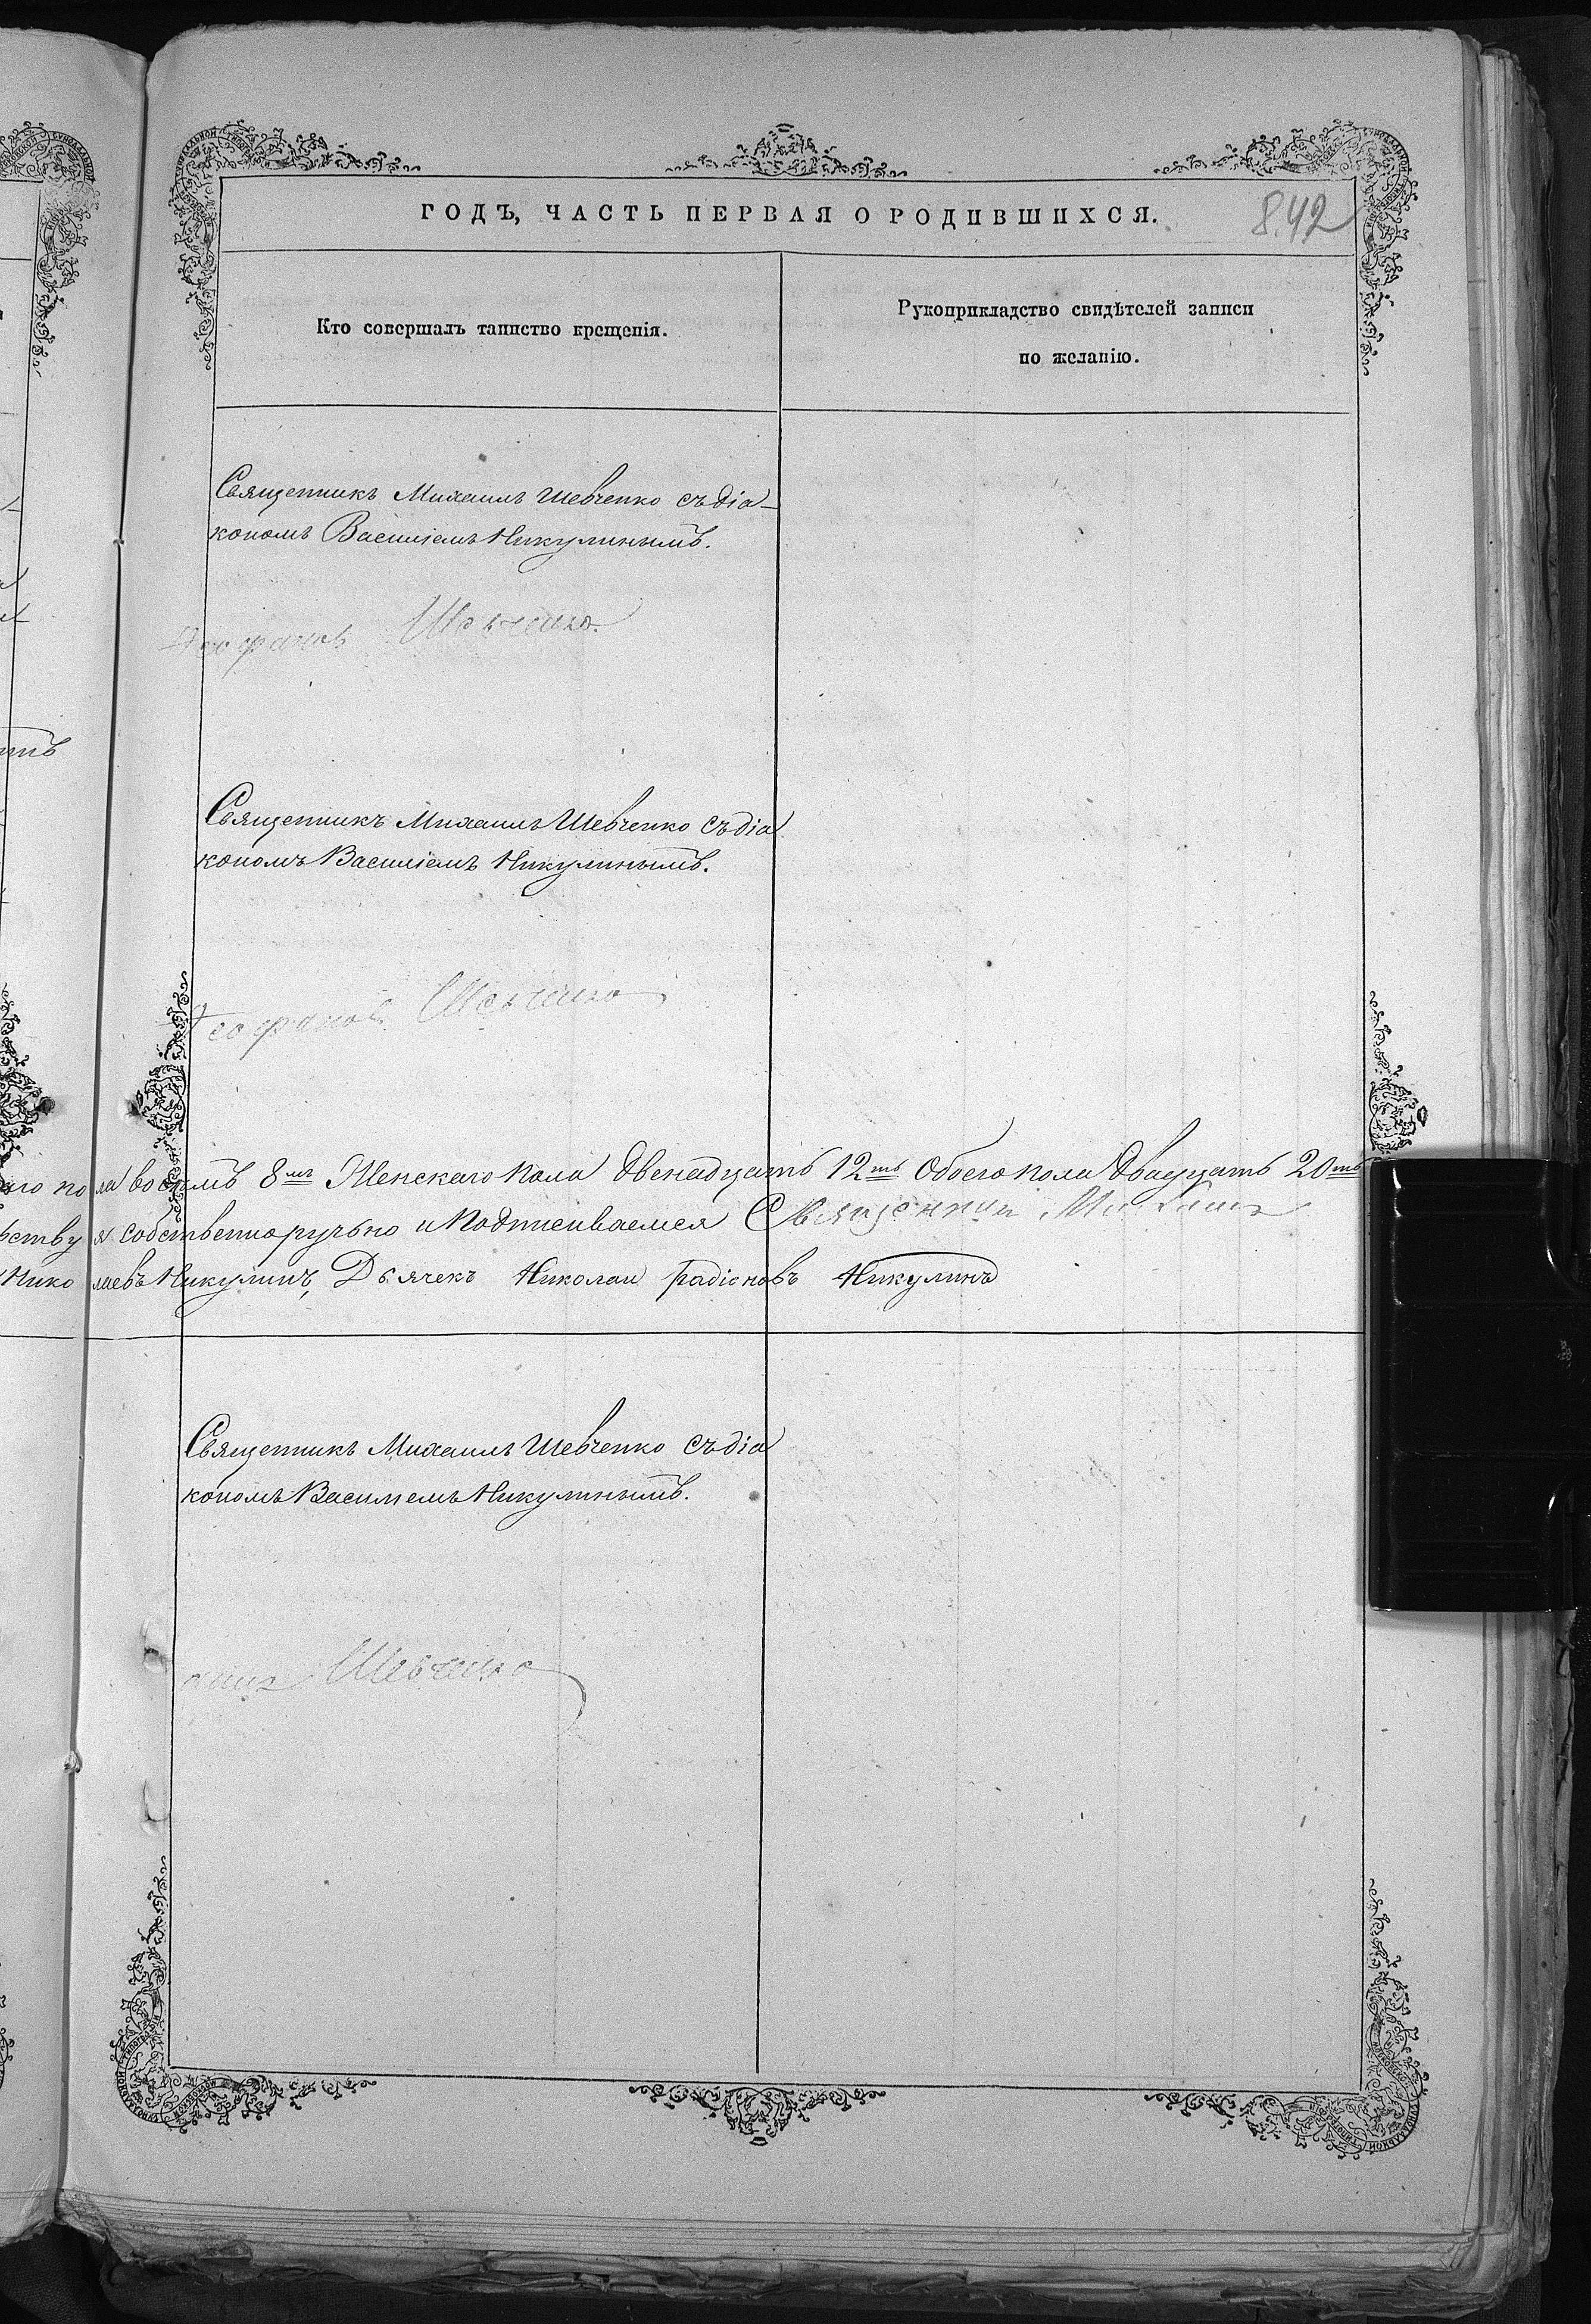 ГОДЪ, ЧАСТЬ ПЕРВАЯ О РОДИВШИХСЯ.
842
Кто совершалъ таинство крещенія.
Рукоприкладство свидѣтелей записи
по желанію.
Священникъ Михаилъ Шевченко съ діа-
кономъ Василіемъ Никулинымъ.
Шевченко
Священникъ Михаилъ Шевченко съ діа
кономъ Василіемъ Никулинымъ.
Шевченко
ла восемь 8мь Женскаго пола двенадцать 12ть Обоего пола двадцать 20ть
собственноручьно и Подписиваемся Священникъ Михаилъ
Нико лаевъ Никулинъ, Дьячекъ Николаи радіоновъ Никулинъ
Священникъ Михаилъ Шевченко съ діа
кономъ Василіемъ Никулинымъ.
Шевченко